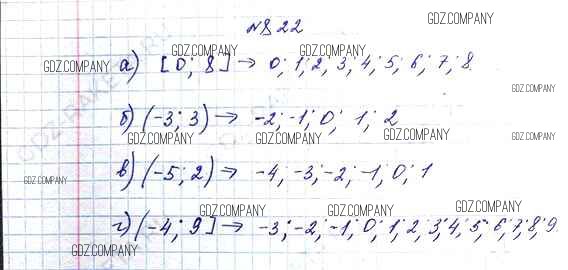 №822
GDZ.COMPANY
а) [0; 8] → 0; 1; 2; 3; 4; 5; 6; 7; 8.
GDZ.COMPANY GDZ.COMPANY GDZ.COMPANY GDZ.COMPANY
б) (-3; 3) → -2; -1; 0; 1; 2
GDZ.COMPANY GDZ.COMPANY GDZ.COMPANY
GDZ.COMPANY GDZ.COMPANY GDZ.COMPANY GDZ.COMPANY
в) (-5; 2) → -4; -3; -2; -1; 0; 1
GDZ.COMPANY
GDZ.COMPANY GDZ.COMPANY GDZ.COMPANY
г) (-4; 9] → -3; -2; -1; 0; 1; 2; 3; 4; 5; 6; 7; 8; 9.
GDZ.COMPANY